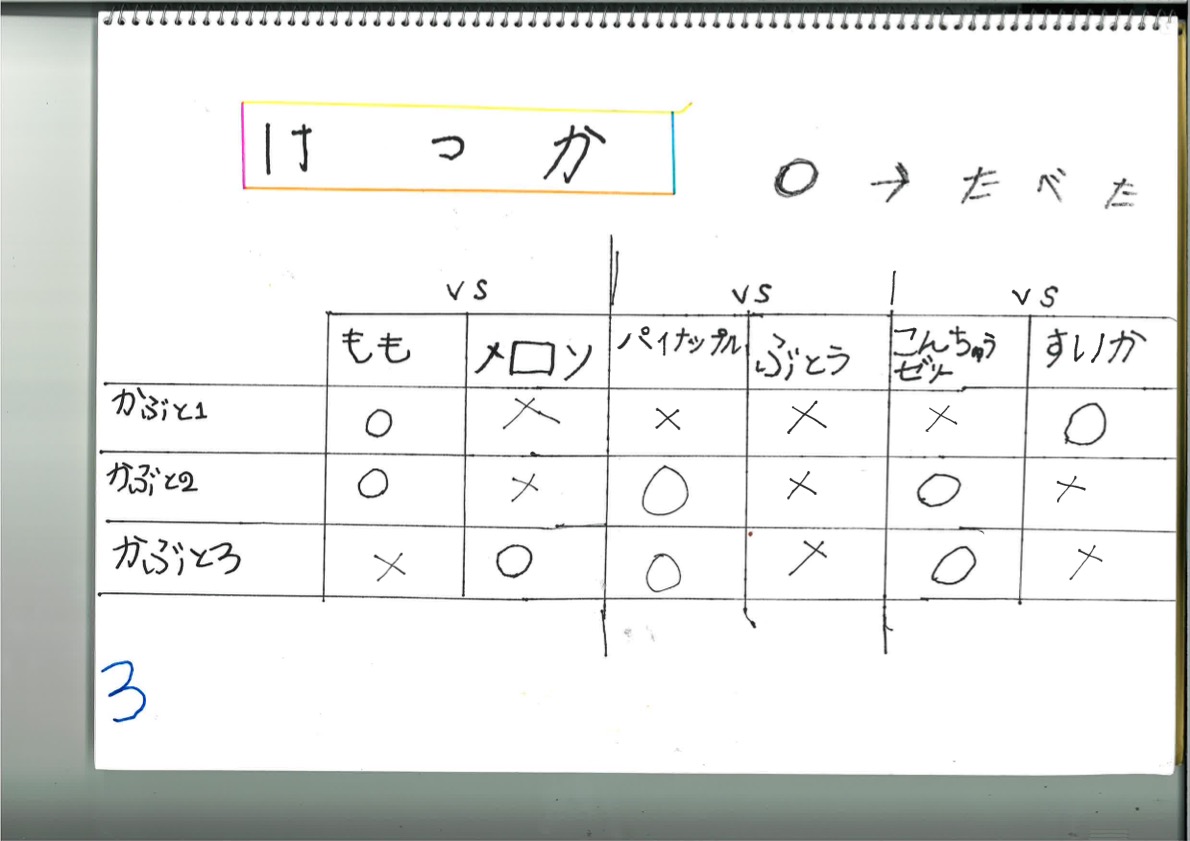 けっか
○ → たべた
vs vs vs
もも メロン パイナップル ぶどう こんちゅうゼリー すいか
かぶと1 ○ × × × × ○
かぶと2 ○ × ○ × ○ ×
かぶと3 × ○ ○ × ○ ×
3